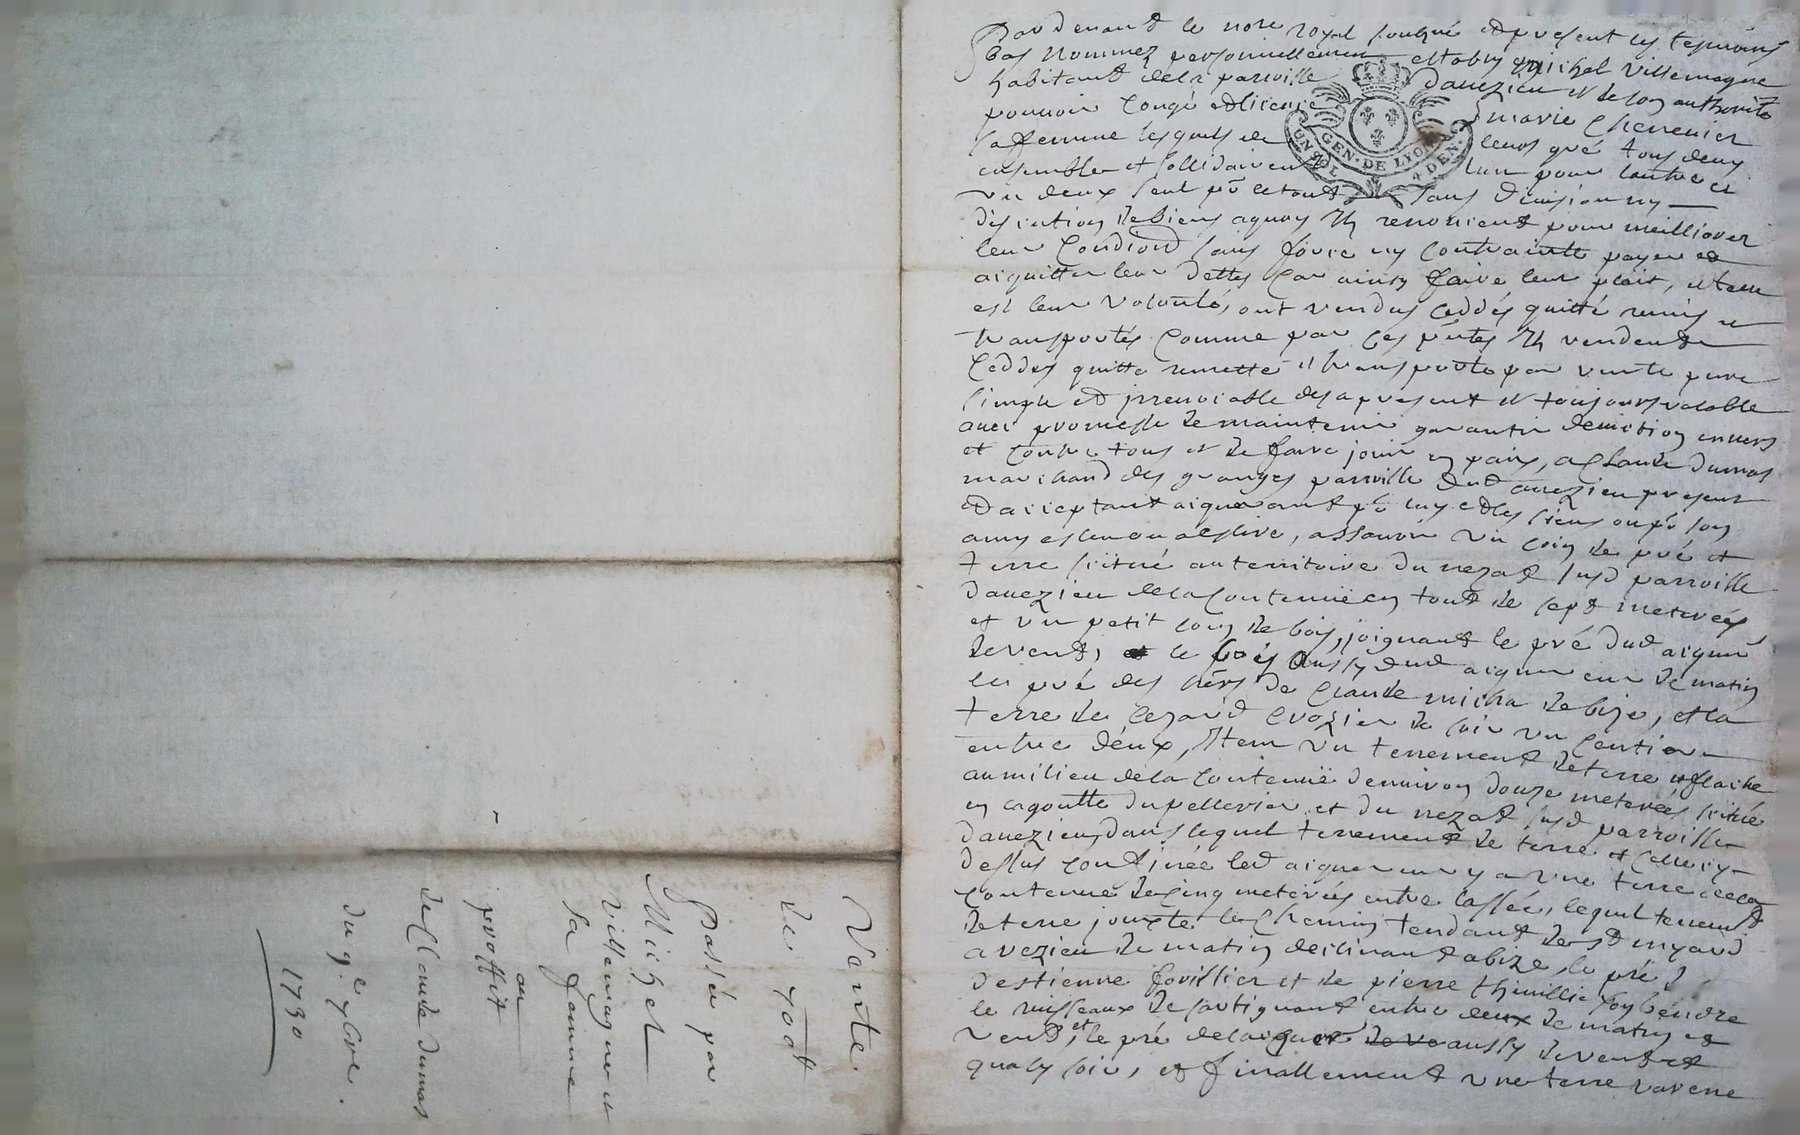 Pardevant le nore royal soubsné et present les tesmoins
bas nommez personnellement estably michel villemagne
habitant de la parroisse davezieu et de son authorité
pouvoir congé et licence marie Chevenier
sa femme lesquels de leurs gré tous deux
ensemble et sollidairement lun pour lautre et
un deux seul po le tout sans division ny
discution de biens aquoy ils renoncent pour meilliorer
leur condiond sans force ny contrainte payer et
aiquitter leur dettes car ainsy faire leur plait, et telle
est leur volonté, ont vendus ceddés quitté remis et
transportés comme par ces pntes ils vendent
ceddes quitte remette et transporte par vente pure
simple et jrrevocable des a present et toujours valable
avec promesse de maintenir garantir deviction envers
et contre tous et de faire jouir en paix, a Claude dumas
marchand des granges parroisse dud avezieu present
et acceptant aiquerant po luy et les siens ou po son
amy eslu ou a eslire, assavoir un coin de pré et
terre scitué au territoire du nezat susd parroisse
davezieu de la contenüe en tout de sept meterées
et un petit coin de bois, joignant le pré dud aiquer
de vent, et le bois aussy dud aiquereur de matin
le pré des hers de Claude micha de bize, et la
terre de Crozier de soir un sentier
entre deux, Item un tenement de terre et flache
au milieu de la contenüe denviron douze meterées scitué
en cagoutte du pellerin et du nezat susd parroisse
davezieu, dans lequel tenement de terre et
dessus confinée led aiquereur y a une terre de la
contenue de cinq meterées entre lassée, lequel tenemt
de terre jouxte le chemin tendant de st myard
a vezieu de matin declinant a bize, le pré
destienne fovillier et de pierre thivillie son gendre
le ruisseaux de sartignant entre deux de matin et
vent, et le pré de laiquer aussy de vent et
quasy soir, et finallement une terre varene
Vante
de 400tt
Passée par
Michel
villemagne et
sa femme
au
proffit
de Claude dumas
du 9e xbre.
1730
GEN. DE LYON
4 DEN.